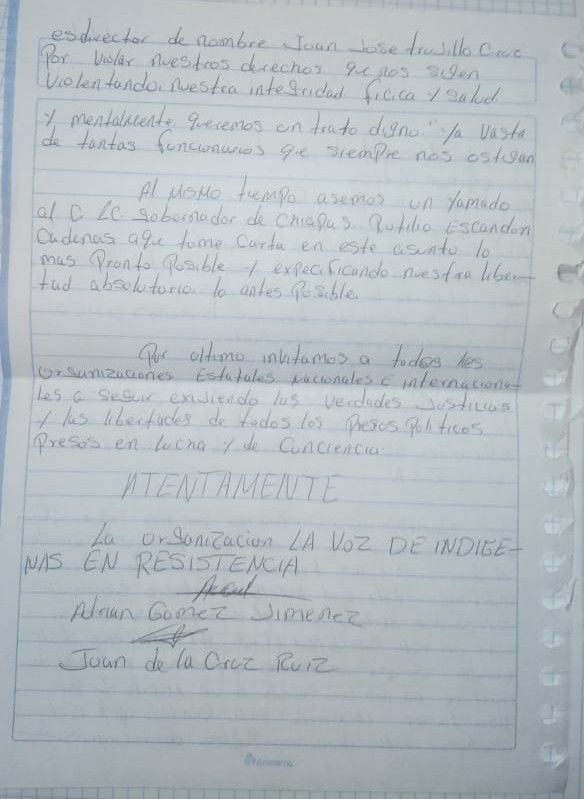 esdirector de nombre Juan Jose trujillo Cruz
Por Violar nuestros derechos que nos sigen
Violentando. nuestra integridad ficica y salud
y mentalmente. queremos un trato digno" ya Vasta
de tantas funcionarios que siempre nos ostigan
Al Mismo tiempo asemos un Yamado
al C LC. Gobernador de Chiapas Rutilio Escandon
Cadenas aque tome Carta en este asunto lo
mas Pronto Posible y expecificando nuestra liber-
tad absolutoria. lo antes Posible.
Por ultimo invitamos a todos los
organizaciones Estatales nacionales e internaciona-
les a seguir exijiendo las verdades Justicias
y las libertades de todos los Presos Politicos
Presos en lucha y de Conciencia.
ATENTAMENTE
La organizacion LA VOZ DE INDIGE-
NAS EN RESISTENCIA
Adrian Gomez Jimenez
Juan de la Cruz Ruiz